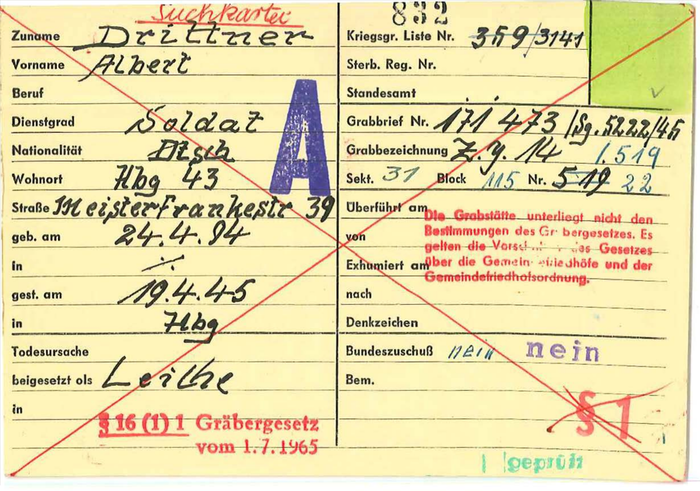 Suchkartei
832
Zuname Drittner
Vorname Albert
Beruf
Dienstgrad Soldat
Nationalität Dtsch
Wohnort Hbg 43
Straße Meisterfrankestr 39
geb. am 24.4.94
in ./.
gest. am 19.4.45
in Hbg
Todesursache
beigesetzt als Leiche
in
§ 16 (1) 1 Gräbergesetz
vom 1.7.1965
A
Kriegsgr. Liste Nr. 359/3141
Sterb. Reg. Nr.
Standesamt
Grabbrief Nr. 171 473 /Sg. 5222/45
Grabbezeichnung Z. y. 14 1.519
Sekt. 31 Block 115 Nr. 519 22
Überführt am
von
Exhumiert am
nach
Denkzeichen
Die Grabstätte unterliegt nicht den
Bestimmungen des Gräbergesetzes. Es
gelten die Vorschriften des Gesetzes
über die Gemeindefriedhöfe und der
Gemeindefriedhofsordnung.
Bundeszuschuß nein nein
Bem.
§ 1
geprüft